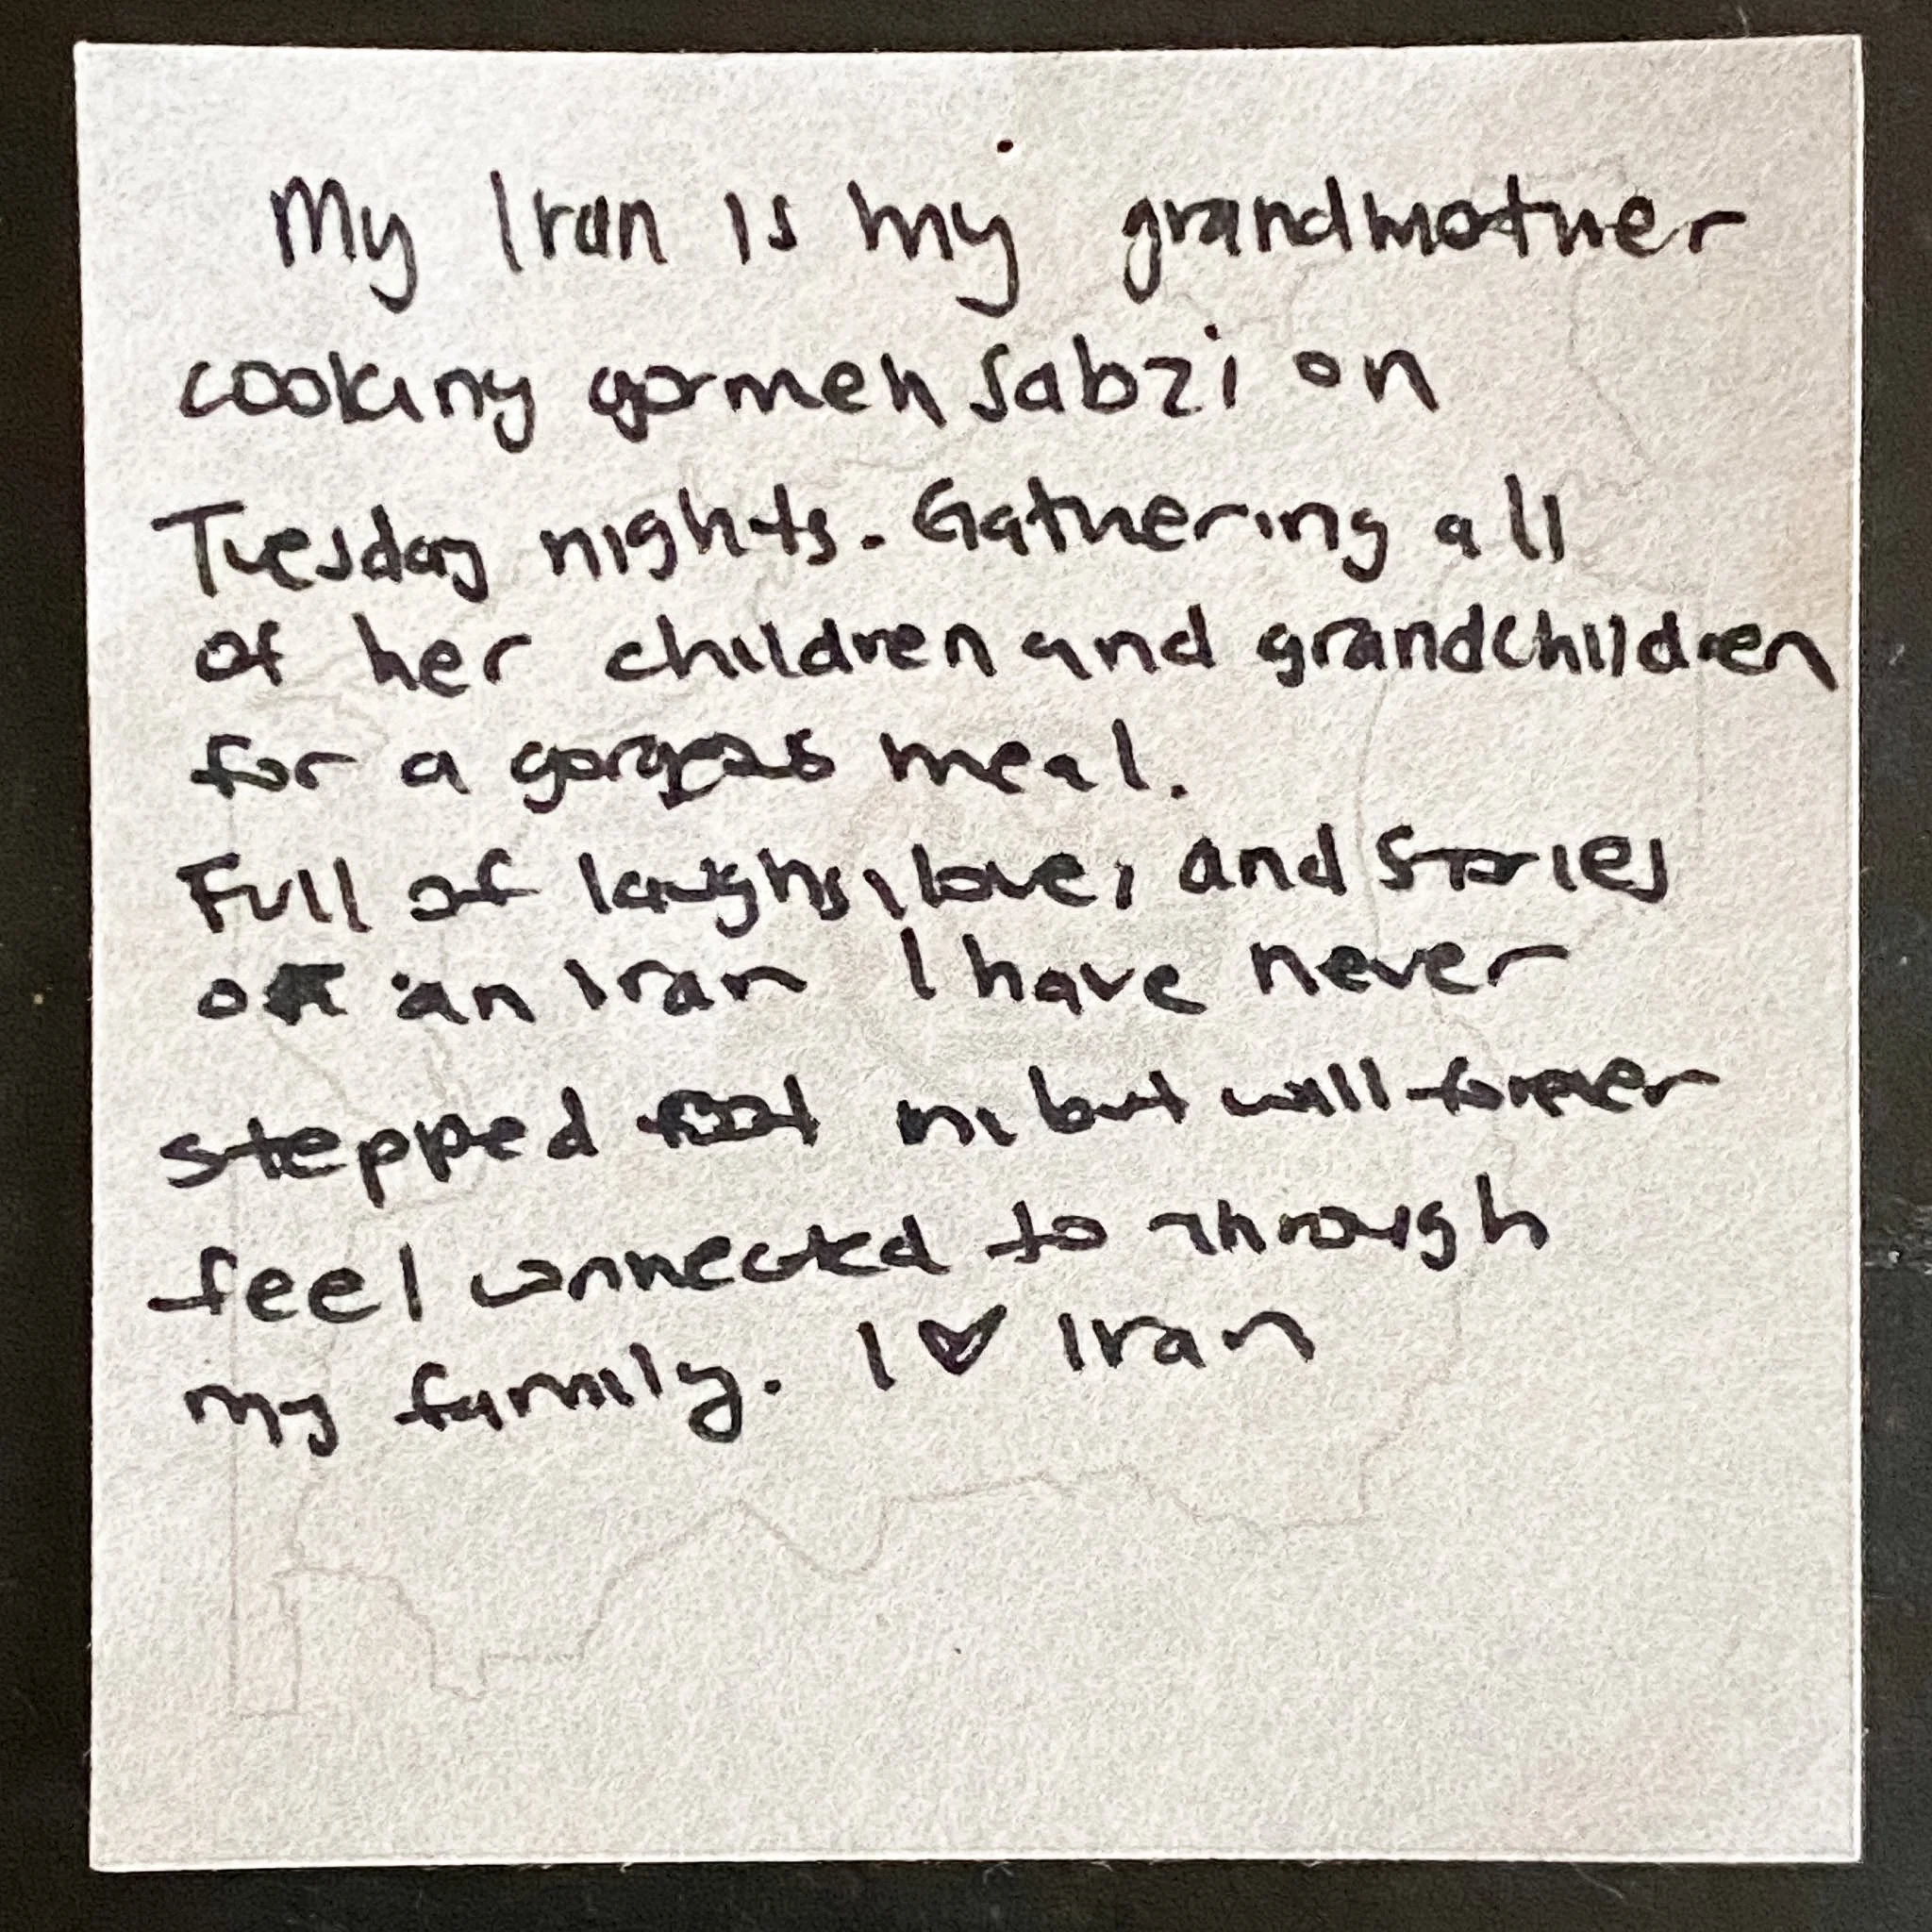 My Iran is my grandmother
cooking gormeh sabzi on
Tuesday nights. Gathering all
of her children and grandchildren
for a gorgeous meal.
Full of laughs, love, and stories
of an Iran I have never
stepped foot in, but will forever
feel connected to through
my family. I ♥ Iran